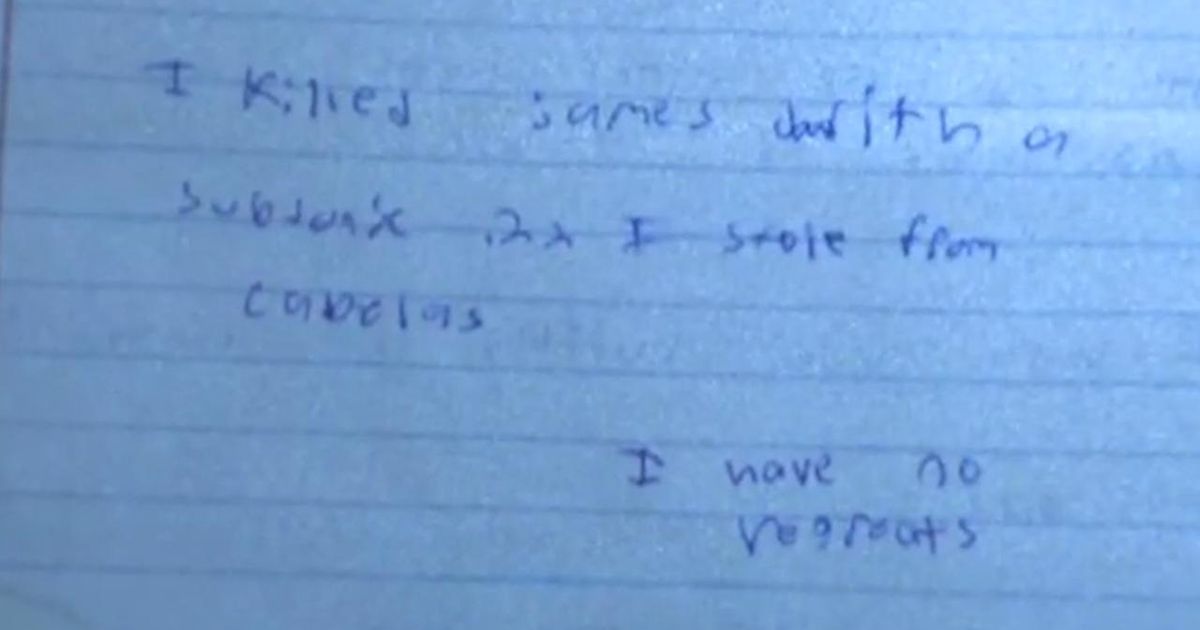 I Killed James with a
subsonic .22 I stole from
cabelas
I have no
regreats